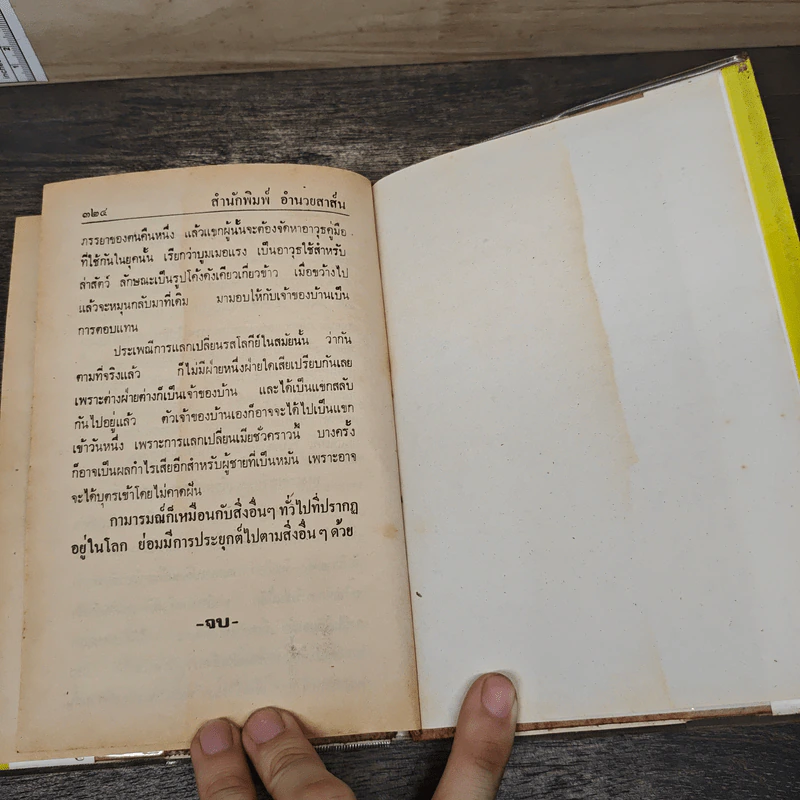 ๓๒๔
สำนักพิมพ์ อำนวยสาส์น
ภรรยาของตนคืนหนึ่ง แล้วแขกผู้นั้นจะต้องจัดหาอาวุธคู่มือ
ที่ใช้กันในยุคนั้น เรียกว่าบูมเมอแรง เป็นอาวุธใช้สำหรับ
ล่าสัตว์ ลักษณะเป็นรูปโค้งดังเคียวเกี่ยวข้าว เมื่อขว้างไป
แล้วจะหมุนกลับมาที่เดิม มามอบให้กับเจ้าของบ้านเป็น
การตอบแทน
ประเพณีการแลกเปลี่ยนรสโลกีย์ในสมัยนั้น ว่ากัน
ตามที่จริงแล้ว ก็ไม่มีฝ่ายหนึ่งฝ่ายใดเสียเปรียบกันเลย
เพราะต่างฝ่ายต่างก็เป็นเจ้าของบ้าน และได้เป็นแขกสลับ
กันไปอยู่แล้ว ตัวเจ้าของบ้านเองก็อาจจะได้ไปเป็นแขก
เข้าวันหนึ่ง เพราะการแลกเปลี่ยนเมียชั่วคราวนี้ บางครั้ง
ก็อาจเป็นผลกำไรเสียอีกสำหรับผู้ชายที่เป็นหมัน เพราะอาจ
จะได้บุตรเข้าโดยไม่คาดฝัน
กามารมณ์ก็เหมือนกับสิ่งอื่นๆ ทั่วไปที่ปรากฏ
อยู่ในโลก ย่อมมีการประยุกต์ไปตามสิ่งอื่น ๆ ด้วย
-จบ-